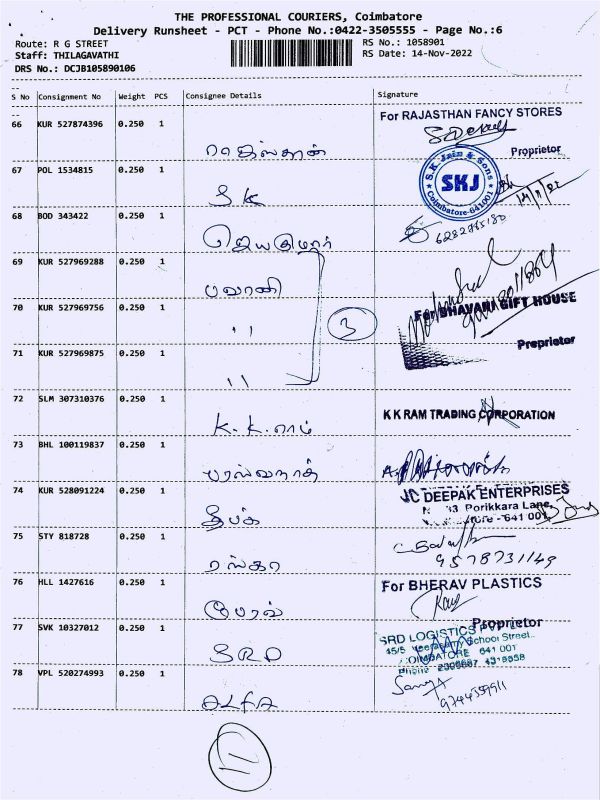 THE PROFESSIONAL COURIERS, Coimbatore
Delivery Runsheet - PCT - Phone No.:0422-3505555 - Page No.:6
Route: R G STREET
RS No.: 1058901
Staff: THILAGAVATHI
RS Date: 14-Nov-2022
DRS No.: DCJB105890106
S No Consignment No Weight PCS Consignee Details Signature
66 KUR 527874396 0.250 1
For RAJASTHAN FANCY STORES
Proprietor
ராஜஸ்தான்
67 POL 1534815 0.250 1
S.K. Jain & Sons
SKJ
Coimbatore-641001
SK
68 BOD 343422 0.250 1
ஜெயகுமார்
69 KUR 527969288 0.250 1
பவானி
70 KUR 527969756 0.250 1
For BHAVANI GIFT HOUSE
" 3
Proprietor
71 KUR 527969875 0.250 1
"
72 SLM 307310376 0.250 1
K K RAM TRADING CORPORATION
K.K.ராம்
73 BHL 100119837 0.250 1
பரஸ்வநாத்
74 KUR 528091224 0.250 1
JC DEEPAK ENTERPRISES
Porikkara Lane,
641 001
தீபக்
75 STY 818728 0.250 1
9578731149
ரங்கா
76 HLL 1427616 0.250 1
For BHERAV PLASTICS
பேரவ்
Proprietor
77 SVK 10327012 0.250 1
SRD LOGISTICS
School Street,
COIMBATORE 641 001
SRD
78 VPL 520274993 0.250 1
ALFA
11